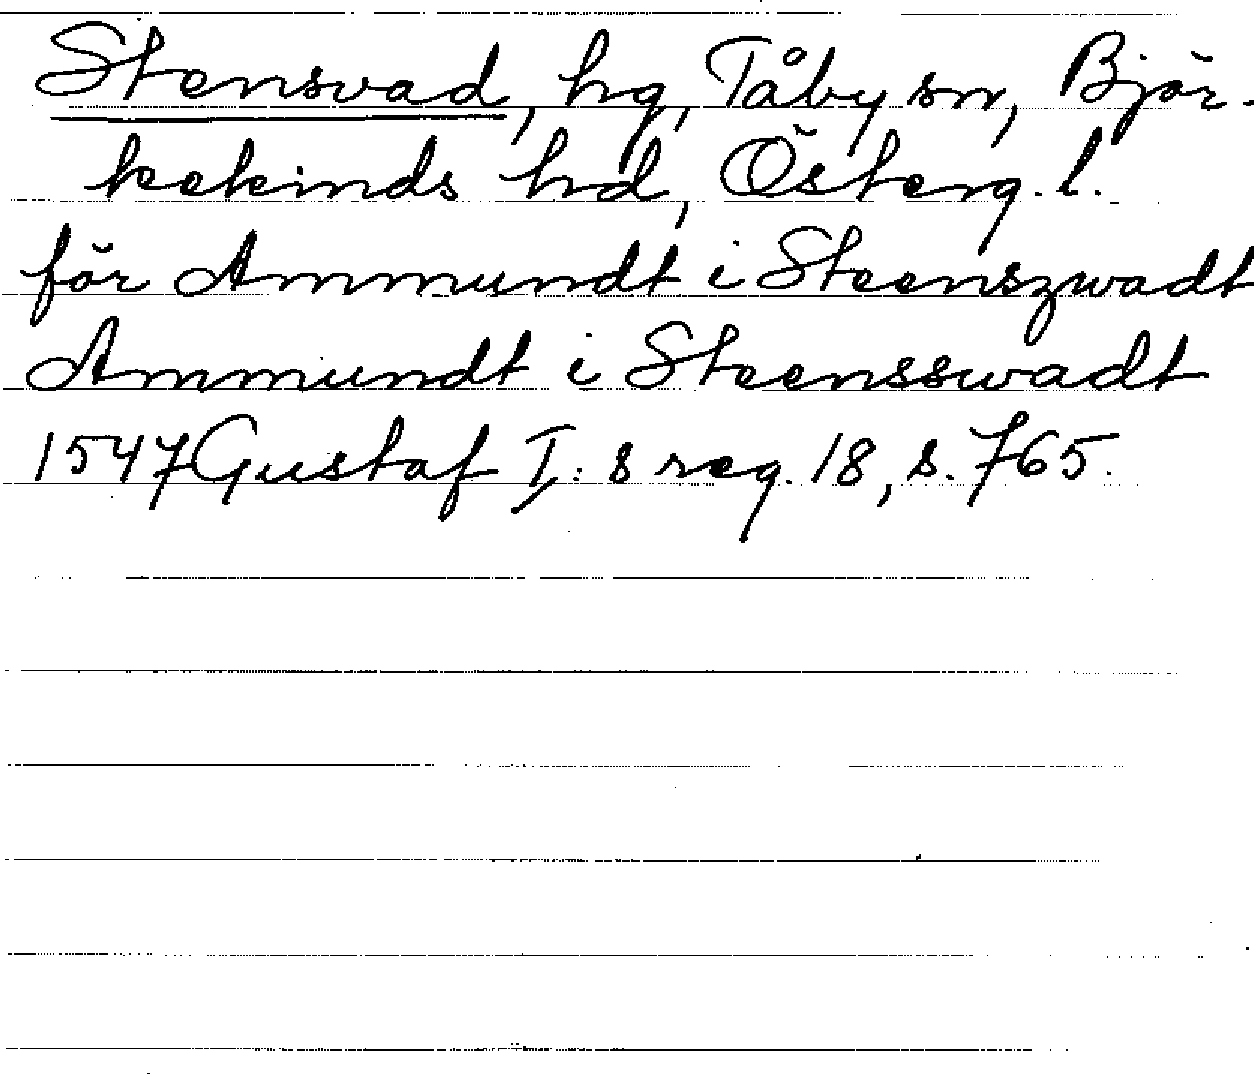 Stensvad, hg, Tåby sn, Björ-
kekinds hd, Österg. l.
för Ammundt i Steenszwadt
Ammundt i Steensswadt
1547 Gustaf I: s reg. 18, s. 765.